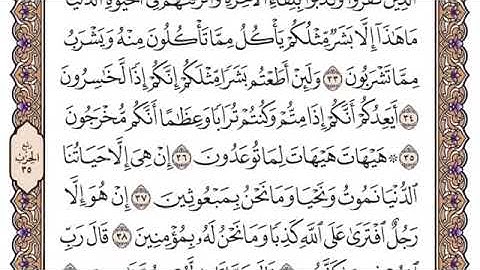 الَّذِينَ كَفَرُوا وَكَذَّبُوا بِلِقَاءِ الْآخِرَةِ وَأَتْرَفْنَاهُمْ فِي الْحَيَوٰةِ الدُّنْيَا
مَا هَٰذَآ إِلَّا بَشَرٌ مِّثْلُكُمْ يَأْكُلُ مِمَّا تَأْكُلُونَ مِنْهُ وَيَشْرَبُ
مِمَّا تَشْرَبُونَ ٣٣ وَلَئِنْ أَطَعْتُم بَشَرًا مِّثْلَكُمْ إِنَّكُمْ إِذًا لَّخَٰسِرُونَ
٣٤ أَيَعِدُكُمْ أَنَّكُمْ إِذَا مِتُّمْ وَكُنتُمْ تُرَابًا وَعِظَٰمًا أَنَّكُم مُّخْرَجُونَ
٣٥ ۞ هَيْهَاتَ هَيْهَاتَ لِمَا تُوعَدُونَ ٣٦ إِنْ هِيَ إِلَّا حَيَاتُنَا
الدُّنْيَا نَمُوتُ وَنَحْيَا وَمَا نَحْنُ بِمَبْعُوثِينَ ٣٧ إِنْ هُوَ إِلَّا
رَجُلٌ افْتَرَىٰ عَلَى اللَّهِ كَذِبًا وَمَا نَحْنُ لَهُ بِمُؤْمِنِينَ ٣٨ قَالَ رَبِّ
ربع
الحزب
٣٥